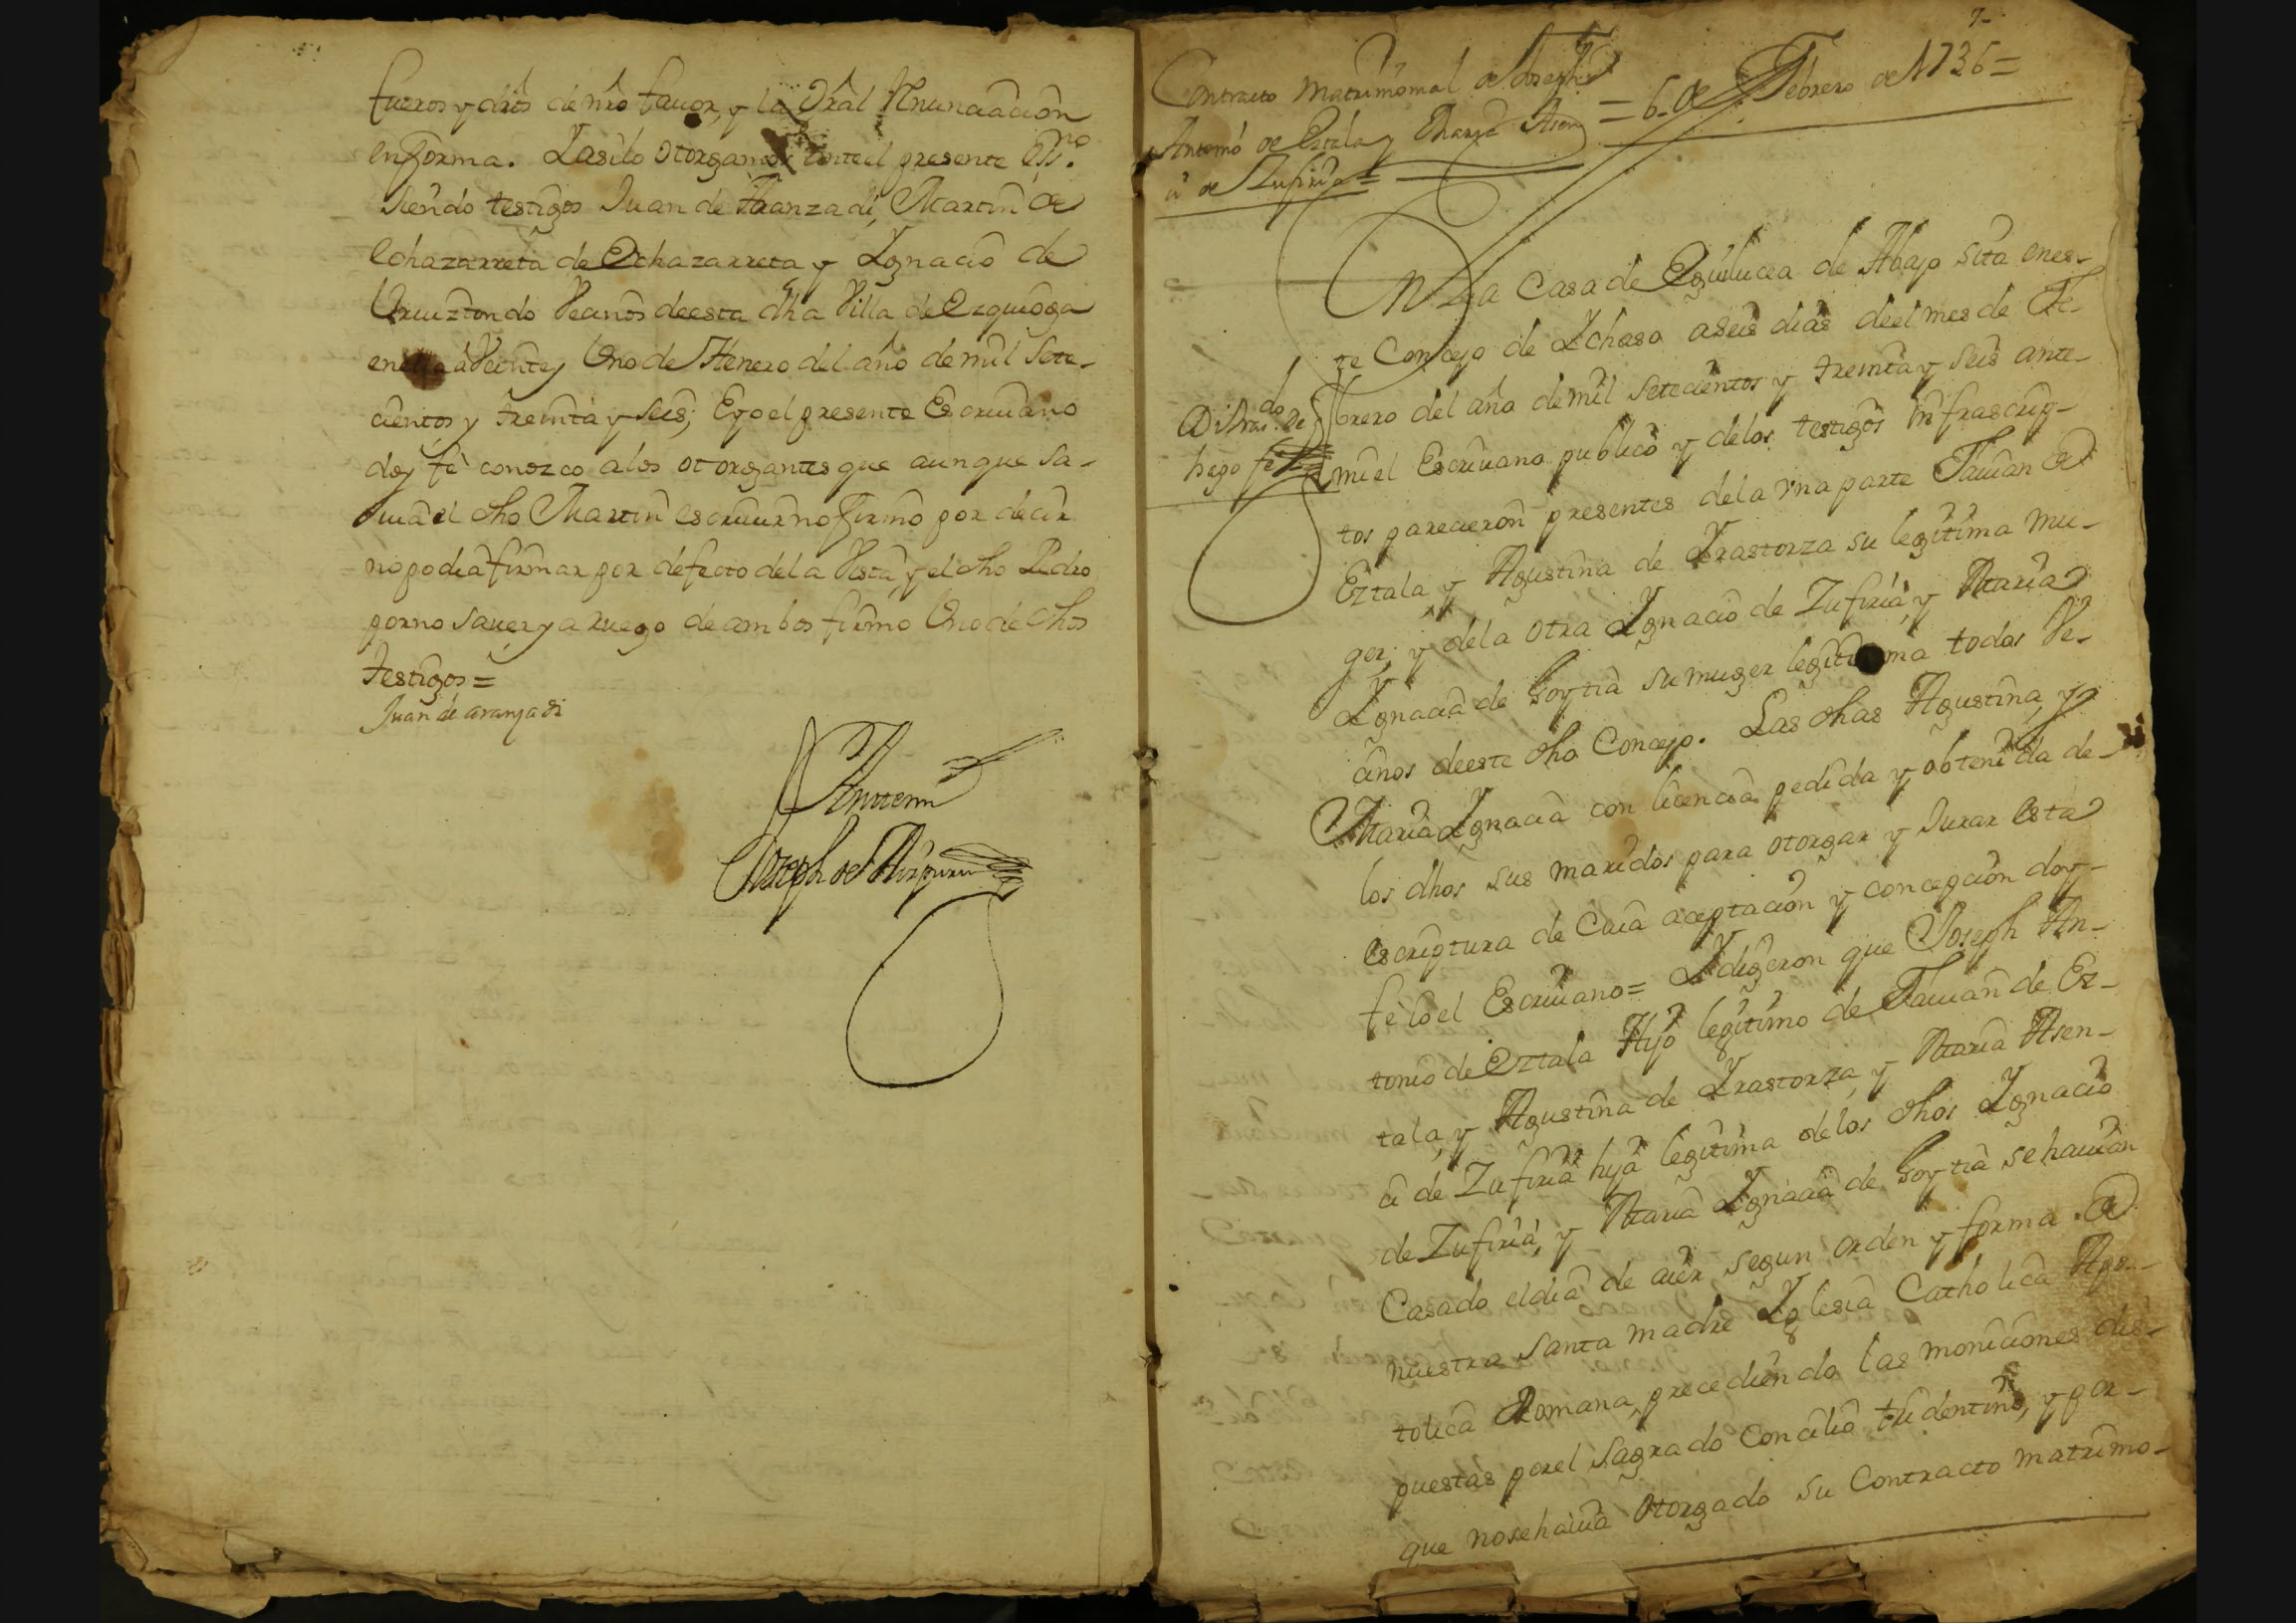 fueros y dros de nro fauor, y la Gral Renunciaciòn
en forma. Y asi lo otorgamos ante el presente Ess.no
siendo testigos Juan de Aranzadi, Martin de
Echazarreta de Echazarreta y Ygnacio de
Vrruztondo Vecinos de esta dha Villa de Ezquioga
en ella à Veinte y Vno de Henero del año de mil sete-
cientos y treinta y seis; E yo el presente Escriuano
doy fè conozco a los otorgantes que aunque sa-
uia el dho Martin escriuir no firmò por decir
no podia firmar por defecto de la Vista, y el dho Pedro
por no sauer, y a ruego de ambos firmò Vno de dhos
testigos =
Juan de aranzadi
Antemi
Joseph de
7-
Contracto matrimonial de Joseph
Antonio de Eztala y Maria Asen
= 6 de Febrero de 1736 =
ci de Zufiria =
En La Casa de Eguilucea de Abajo sita en es-
te Concejo de Ychaso a seis dias de el mes de Fe-
brero del año de mil setecientos y treinta y seis ante
mi el Escriuano publico y de los testigos infrascrip-
tos parecieron presentes de la vna parte Fauian de
Eztala, y Agustina de Yrastorza su legitima mu-
ger; y de la otra Ygnacio de Zufiria, y Maria
Ygnacia de Goytia su muger legitima todos Ve-
cinos de este dho Concejo. Las dhas Agustina, y
Maria Ygnacia con licencia pedida y obtenida de
los dhos sus maridos para otorgar y Jurar esta
escriptura de Cuia aceptacion y concepcion doy
fè Yo el Escriuano = Y digeron que Joseph An-
tonio de Eztala Hijo legitimo de Fauian de Ez-
tala, y Agustina de Yrastorza, y Maria Asen-
ci de Zufiria hija legitima de los dhos Ygnacio
de Zufiria, y Maria Ygnacia de Goytia se hauian
Casado el dia de aier segun orden y forma de
nuestra santa madre Yglesia Catholica Apos-
tolica Romana, precediendo las moniciones dis-
puestas por el Sagrado Concilio tridentino, y por-
que no se hauia otorgado su Contracto matrimo-